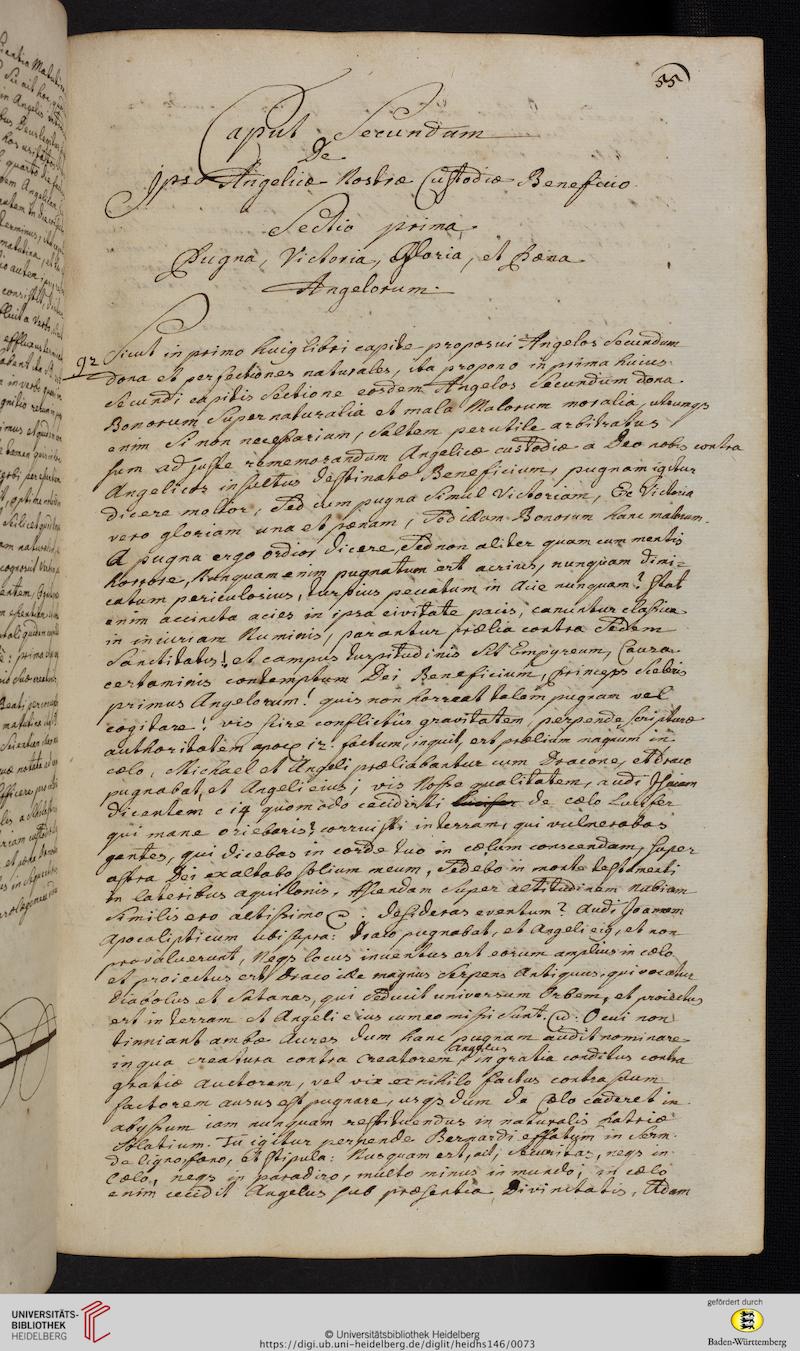 55
Caput Secundum
De
Ipso Angelicæ Nostræ Custodiæ Beneficio
Sectio prima
Pugna, Victoria, Gloria, et Pæna
Angelorum.
92 Sicut in primo huius libri capite proposui Angelos Secundum
dona et perfectiones naturales, ita propono in prima huius
Secundi capitis Sectione eosdem Angelos Secundum dona
Bonorum Supernaturalia et mala Malorum moralia, utrumqs
enim Si non necessarium, saltem perutile arbitratus
sum ad juste rememorandum Angelicæ custodiæ a Deo nobis contra
Angelicos insultus destinatæ Beneficium, pugnam igitur
dicere molior, Sed cum pugna Simul Victoriam, Ex Victoria
vero gloriam una et pænam, Sed illam Bonorum hanc malorum.
A pugna ergo ordior dicere, Sed non aliter quam cum mentis
horrore, Nunquam enim pugnatum est acrius, nunquam dimi=
catum periculosius, turpius peccatum in Acie nunquam? Stat
enim accincta acies in ipsa civitate pacis, canuntur classica
in iniuriam Numinis, parantur prælia contra Sedem
Sanctitatis! et campus turpitudinis Sit Empyreum, Causa
certaminis contemptum Dei Beneficium, Princeps sceleris
primus Angelorum! quis non horreat talem pugnam vel
cogitare! vis scire conflictûs gravitatem, perpende Scripturæ
authoritatem apoc 12. factum, inquit, est prælium magnum in
cælo, Michael et Angeli præliabantur cum Dracone, et Draco
pugnabat, et Angeli eius; vis Nosse qualitatem, audi Isaiam
dicentem c 14 quomodo cecidisti de cælo Lucifer
qui mane oriebaris? corruisti in terram, qui vulnerabas
gentes, qui dicebas in corde tuo in cælum conscendam, super
astra Dei exaltabo solium meum, Sedebo in monte testamenti
in lateribus aquilonis, Ascendam super altitudinem Nubium
Similis ero altissimo : desideras eventum? Audi Joannem
Apocalipticum ubi supra: Draco pugnabat, et Angeli eius, et non
prævaluerunt, Neqs locus inventus est eorum amplius in cælo
et proiectus est Draco ille magnus Serpens Antiquus, qui vocatur
Diabolus et Satanas, qui Seducit universum Orbem, et proiectus
est in terram et Angeli eius cum eo missi sunt. O cui non
tinniant ambæ Aures dum hanc pugnam audit nominare
in qua creatura contra Creatorem, Angelus in gratia conditus contra
gratiæ Auctorem, vel vix ex nihilo factus contra suum
factorem ausus est pugnare, usqs dum de Cælo caderet in
abyssum iam nunquam restituendus in naturalis patriæ
Solatium. Tu igitur perpende Bernardi effatum in Serm.
de ligno, fæno, et stipula: Nusquam est, ait, securitas, neqs in
Cælo, neqs in paradiso, multo minus in mundo; in cælo
enim cecidit Angelus sub præsentia Divinitatis, Adam
UNIVERSITÄTS-
BIBLIOTHEK
HEIDELBERG
© Universitätsbibliothek Heidelberg
https://digi.ub.uni-heidelberg.de/diglit/heidhs146/0073
gefördert durch
Baden-Württemberg